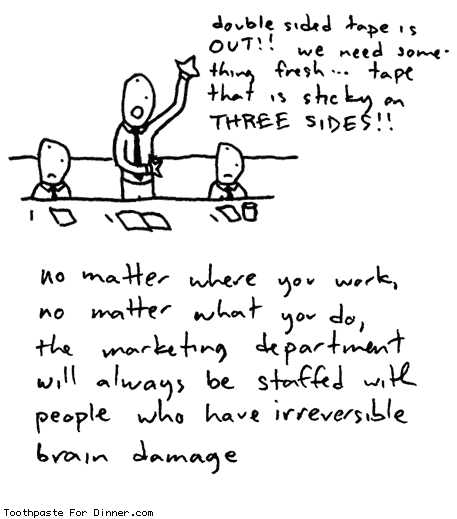 double sided tape is
OUT!! we need some-
thing fresh... tape
that is sticky on
THREE SIDES!!
no matter where you work,
no matter what you do,
the marketing department
will always be staffed with
people who have irreversible
brain damage
Toothpaste For Dinner.com